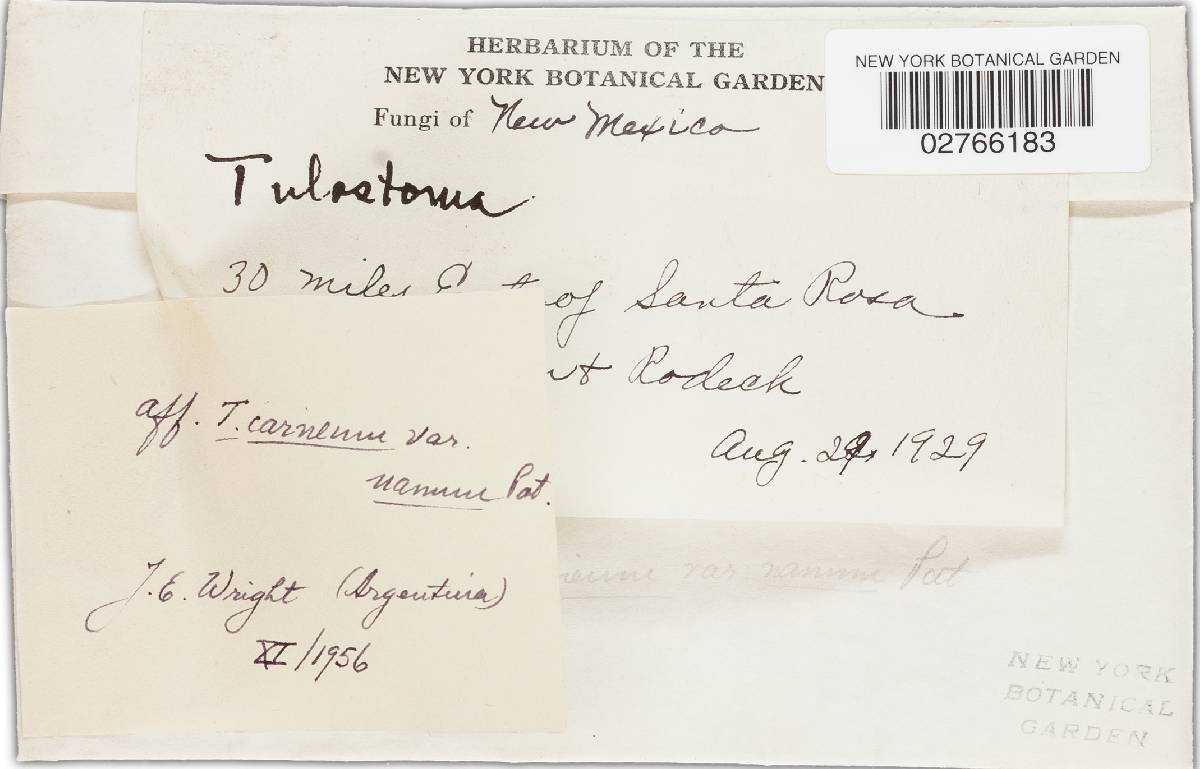 HERBARIUM OF THE
NEW YORK BOTANICAL GARDEN
Fungi of New Mexico
NEW YORK BOTANICAL GARDEN
02766183
Tulostoma
30 miles of Santa Rosa.
Rodeck
Aug. 29, 1929
aff. T. carneum var.
nanum Pat.
J. E. Wright (Argentina)
XI/1956
var nanum Pat
NEW YORK
BOTANICAL
GARDEN